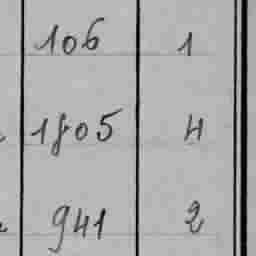 106 1
1805 4
941 2